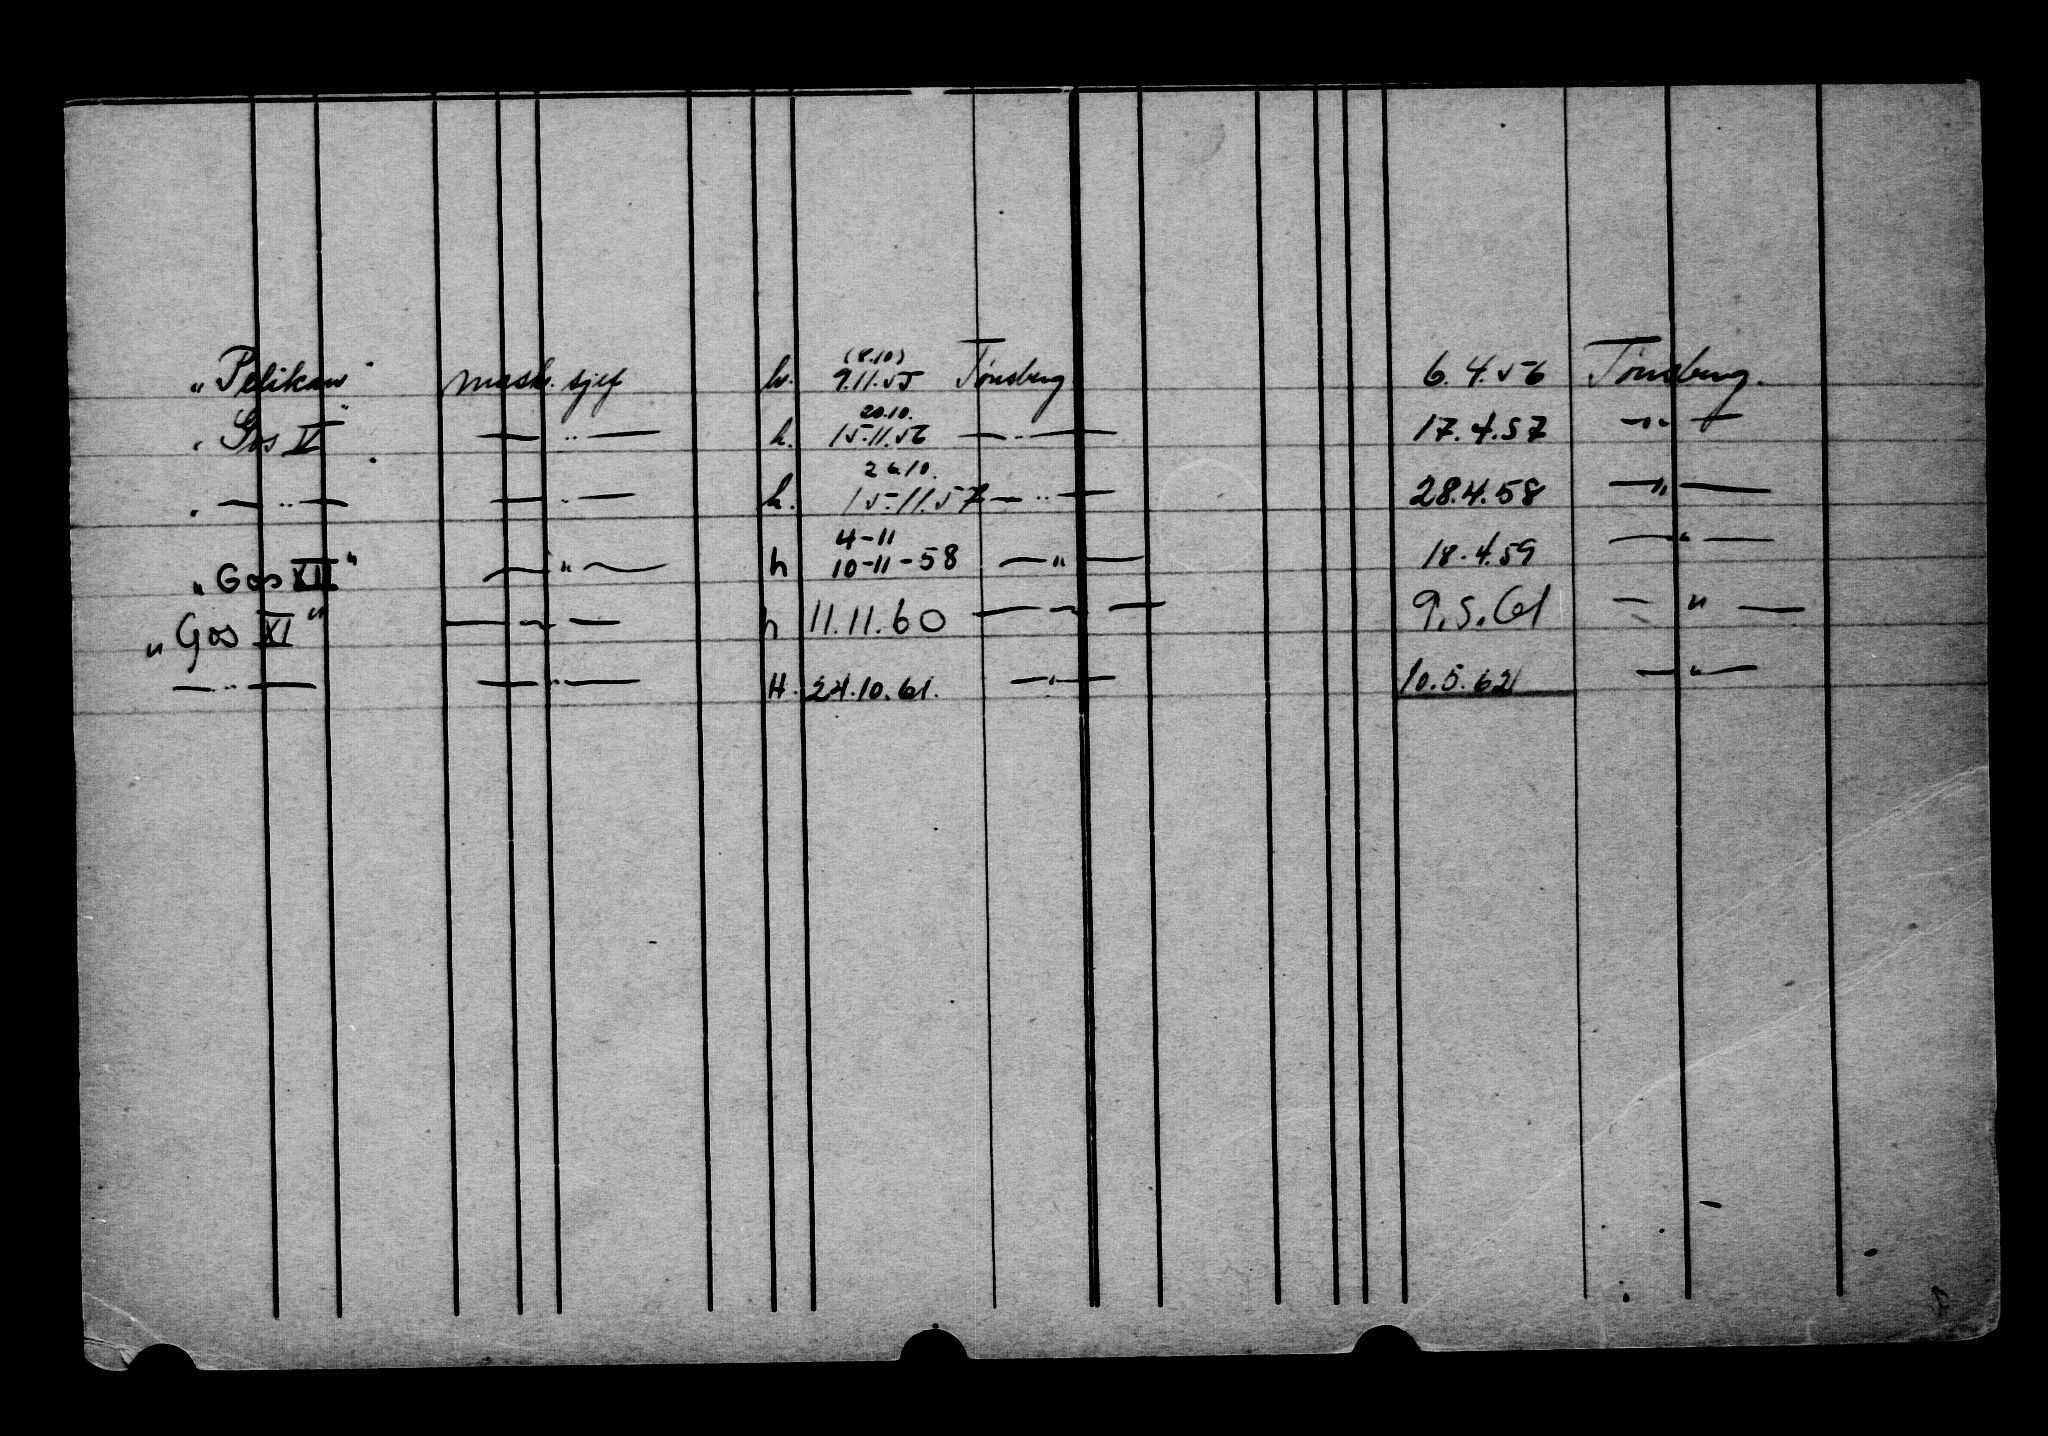 (8.10)
„Pelikan" mask. sjef h. 9.11.55 Tønsberg 6.4.56 Tønsberg.
20.10.
„Gos V" — „ — h. 15.11.56 — „ — 17.4.57 — „ —
26.10.
„ — „ — — „ — h. 15.11.57 — „ — 28.4.58 — „ —
4-11
„Gos XII" — „ — h 10-11-58 — „ — 18.4.59 — „ —
„Gos XI" — „ — h 11.11.60 — „ — 9.5.61 — „ —
— „ — — „ — H. 24.10.61. — „ — 10.5.62 — „ —